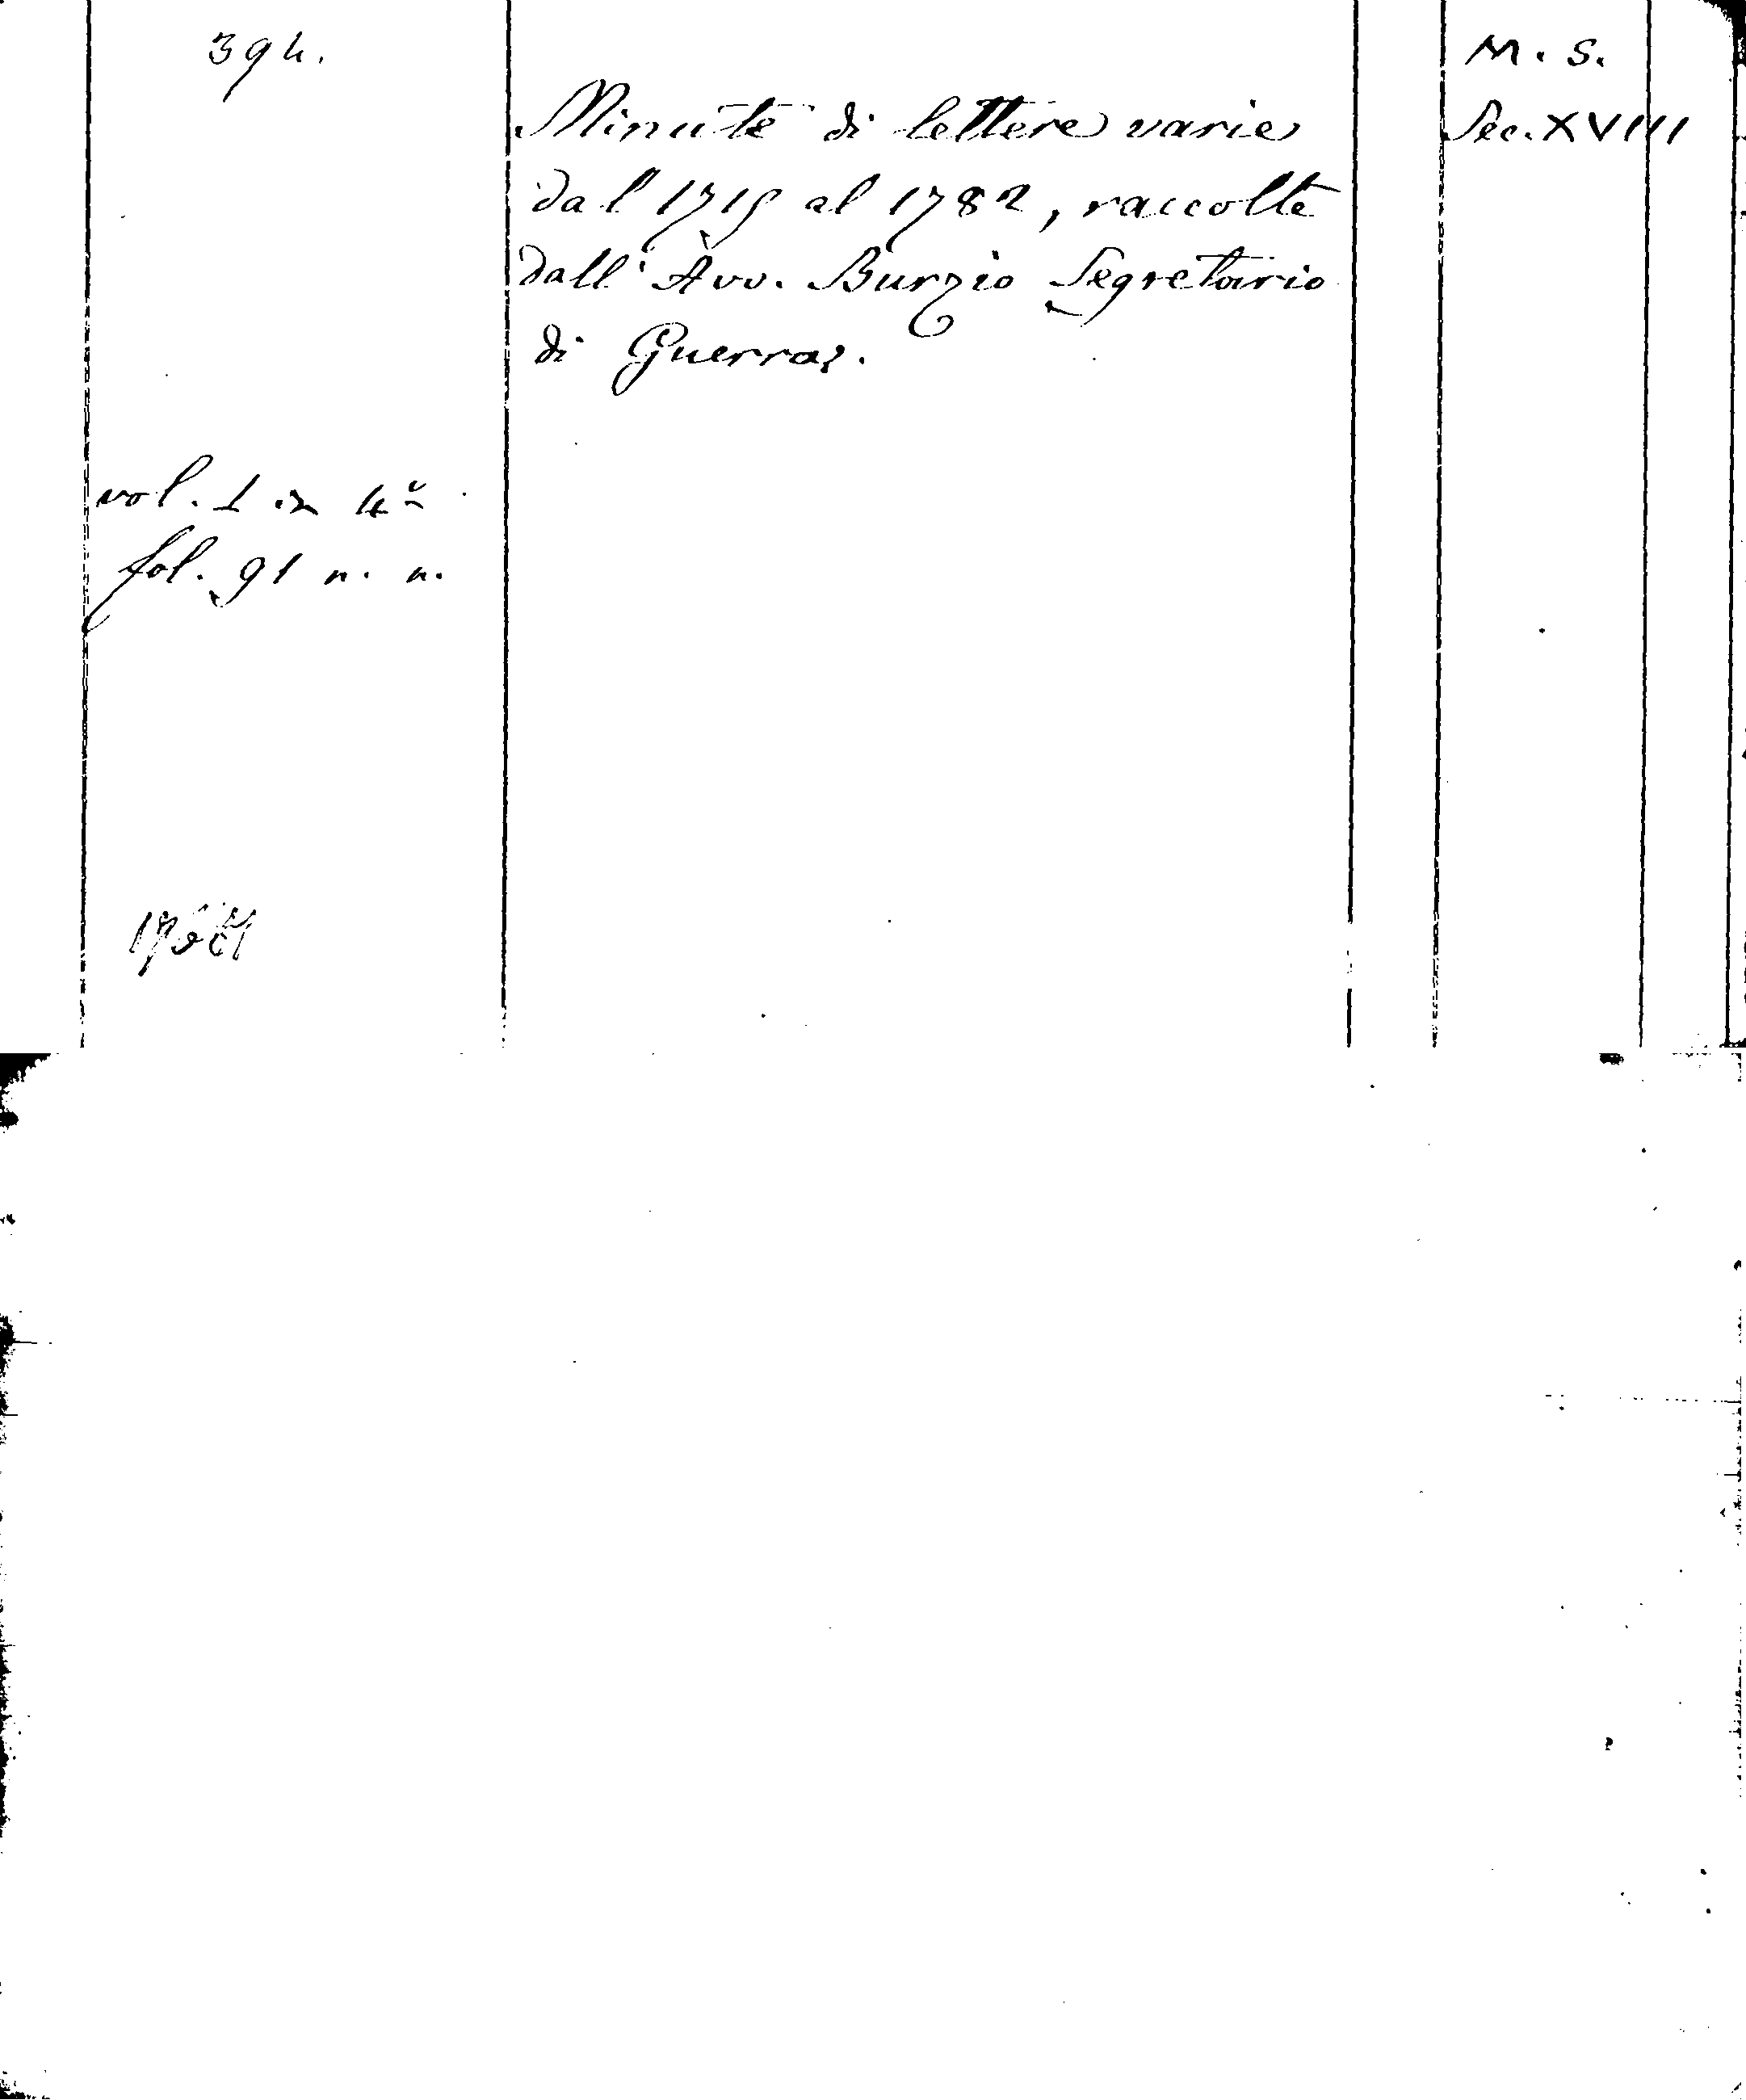 394.
M. S.
Sec. XVIII
Minute di lettere varie
dal 1719 al 1782, raccolte
dall' Avv. Burzio Segretario
di Guerra.
vol. 1 in 4º
fol. 91 n. n.